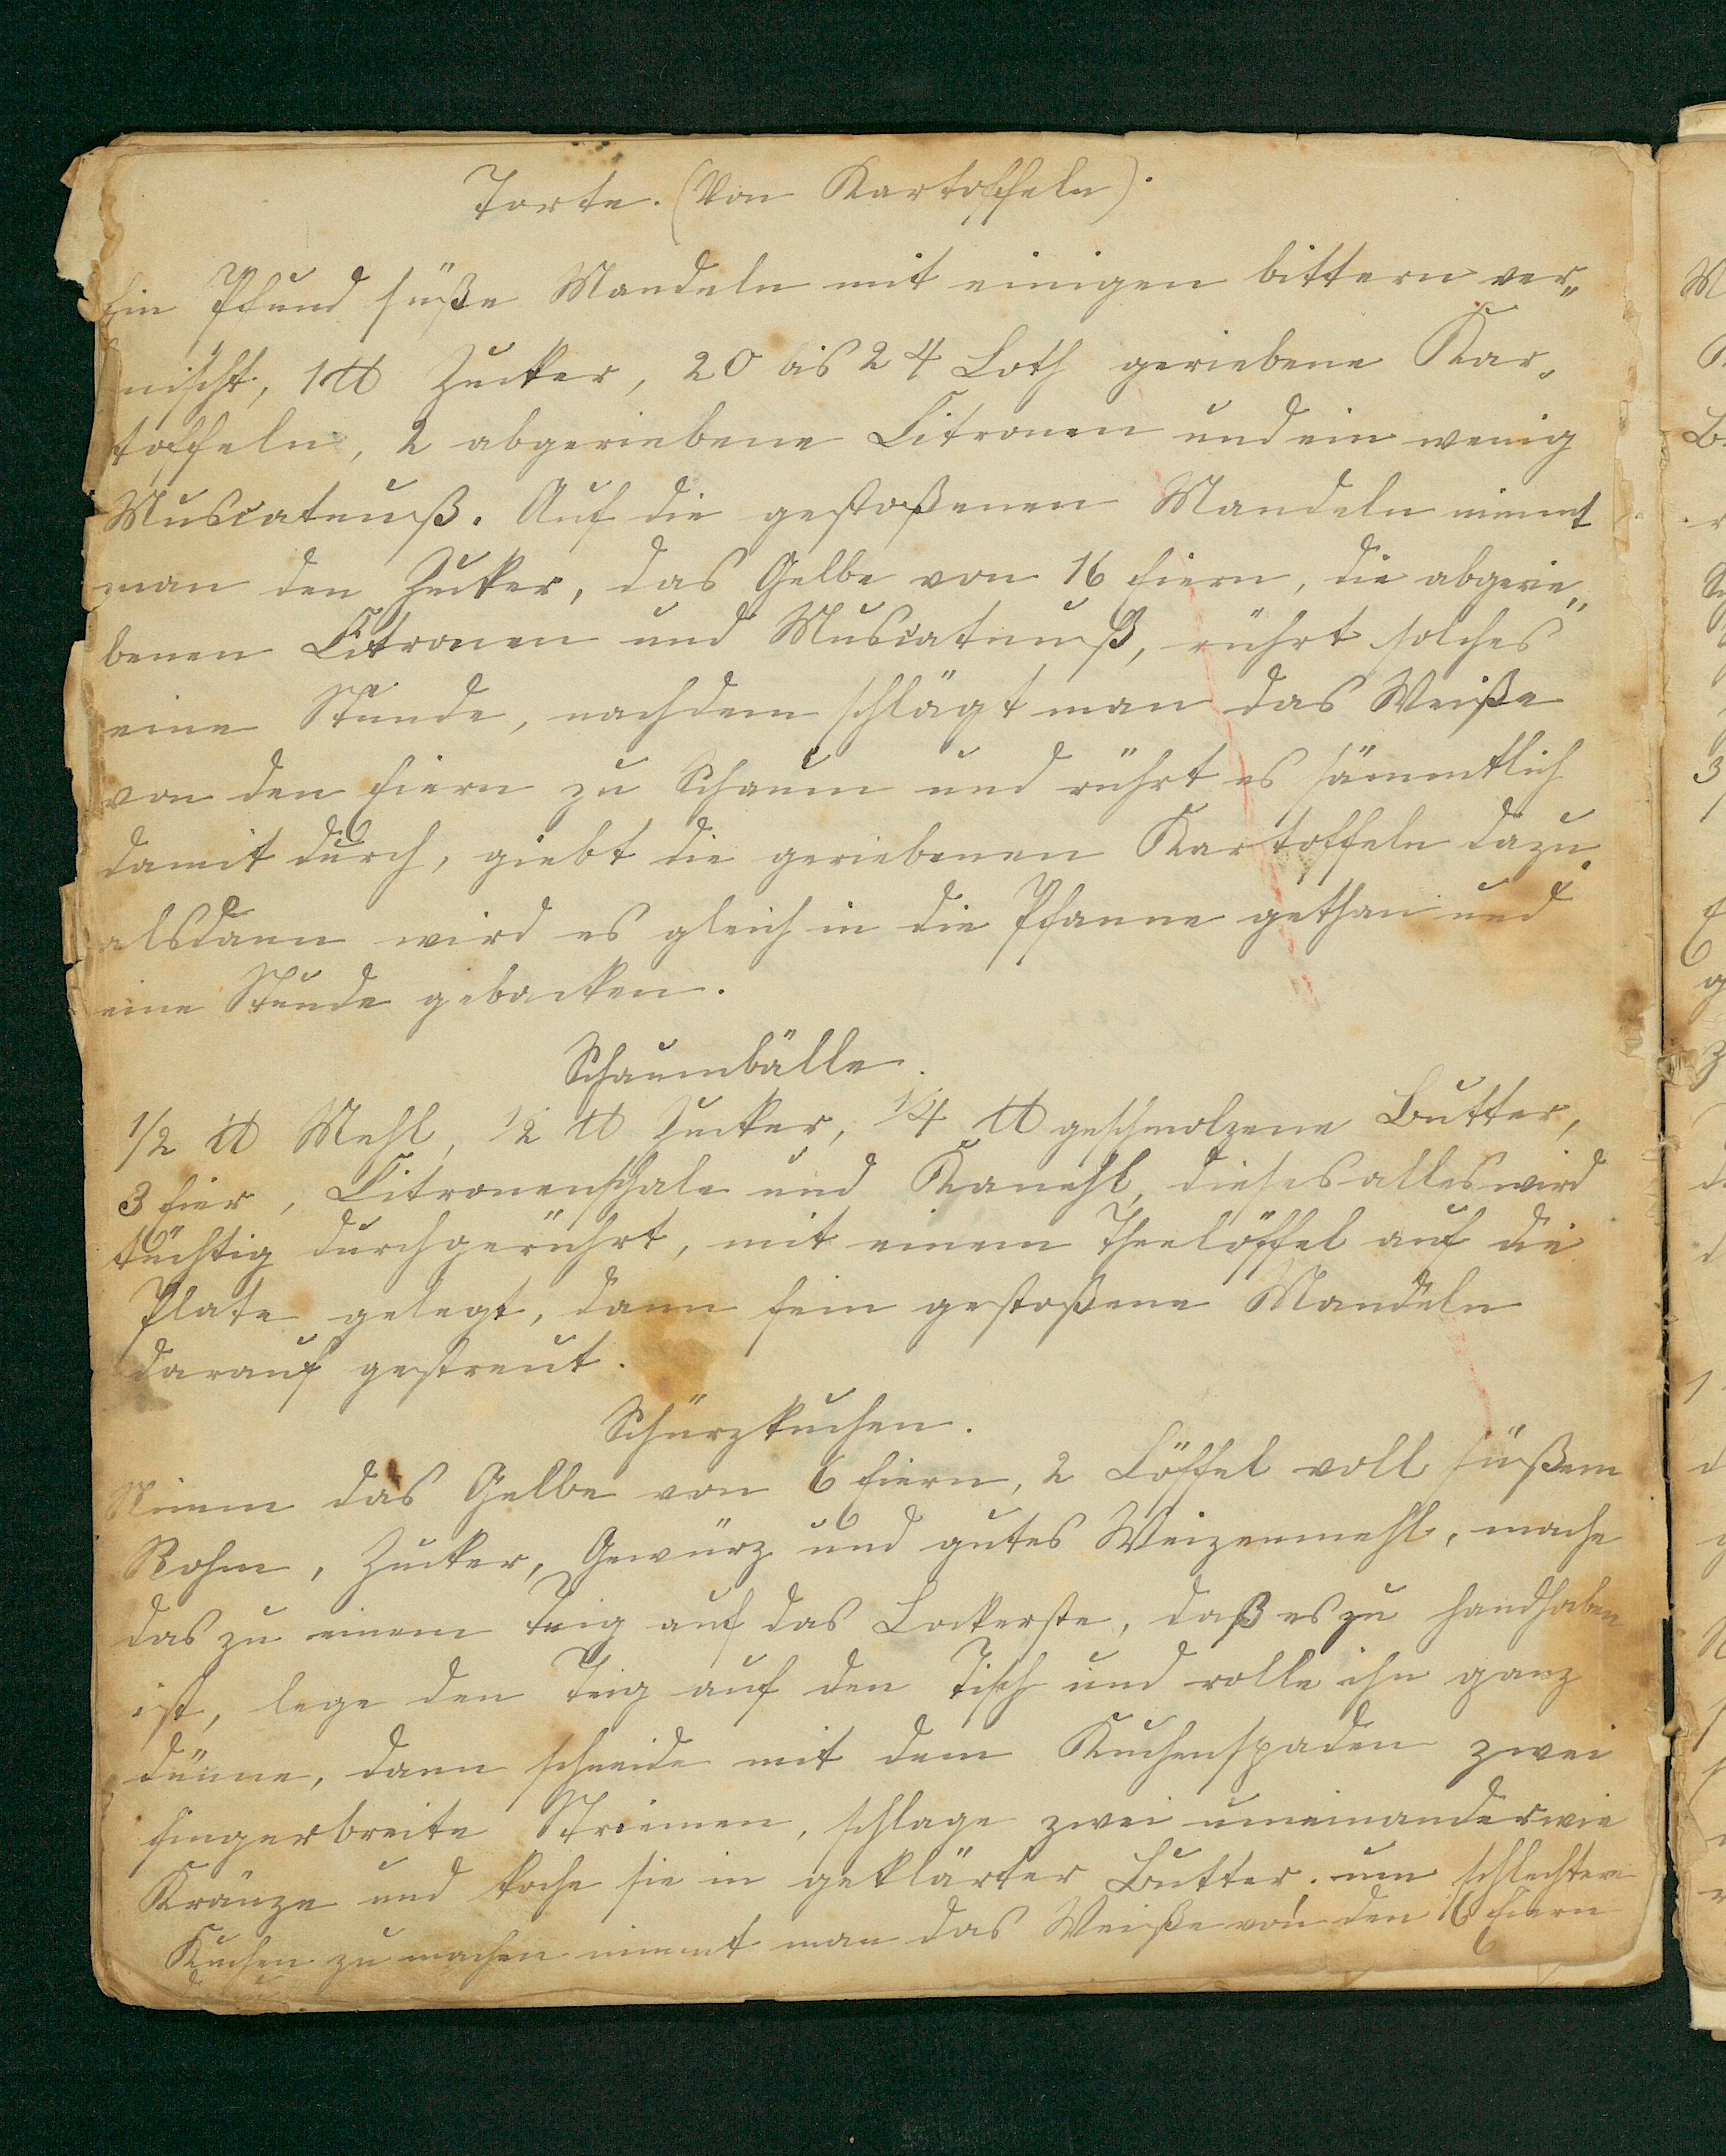 Torte. (Von Kartoffeln).
Ein Pfund süße Mandeln mit einigen bittern ver„
mischt, 1 ℔ Zucker, 20 bis 24 Loth geriebene Kar„
toffeln, 2 abgeriebene Citronen und ein wenig
Muscatnuß. Auf die gestoßenen Mandeln nimmt
man den Zucker, das Gelbe von 16 Eiern, die abgerie„
benen Citronen und Muscatnuß, rührt solches
eine Stunde, nachdem schlägt man das Weiße
von den Eiern zu Schaum und rührt es sämmtlich
damit durch, giebt die geriebenen Kartoffeln dazu.
alsdann wird es gleich in die Pfanne gethan und
eine Stunde gebacken.
Schaumbälle.
1/2 ℔ Mehl, 1/2 ℔ Zucker, 1/4 ℔ geschmolzene Butter,
3 Eier, Citronenschale und Kanehl, dieses alles wird
tüchtig durchgerührt, mit einem Theelöffel auf die
Plate gelegt, dann fein gestoßene Mandeln
darauf gestreut.
Schürzkuchen.
Nimm das Gelbe von 6 Eiern, 2 Löffel voll süßem
Rohm, Zucker, Gewürz und gutes Weizenmehl, mache
das zu einem Teig auf das Lockerste, daß es zu handhaben
ist, lege den Teig auf den Tisch und rolle ihn ganz
dünne, dann schneide mit dem Kuchenspaden zwei
fingerbreite Striemen, schlage zwei umeinander wie
Kränze und koche sie in geklärter Butter, um schlechtere
Kuchen zu machen nimmt man das Weiße von den 16 Eiern